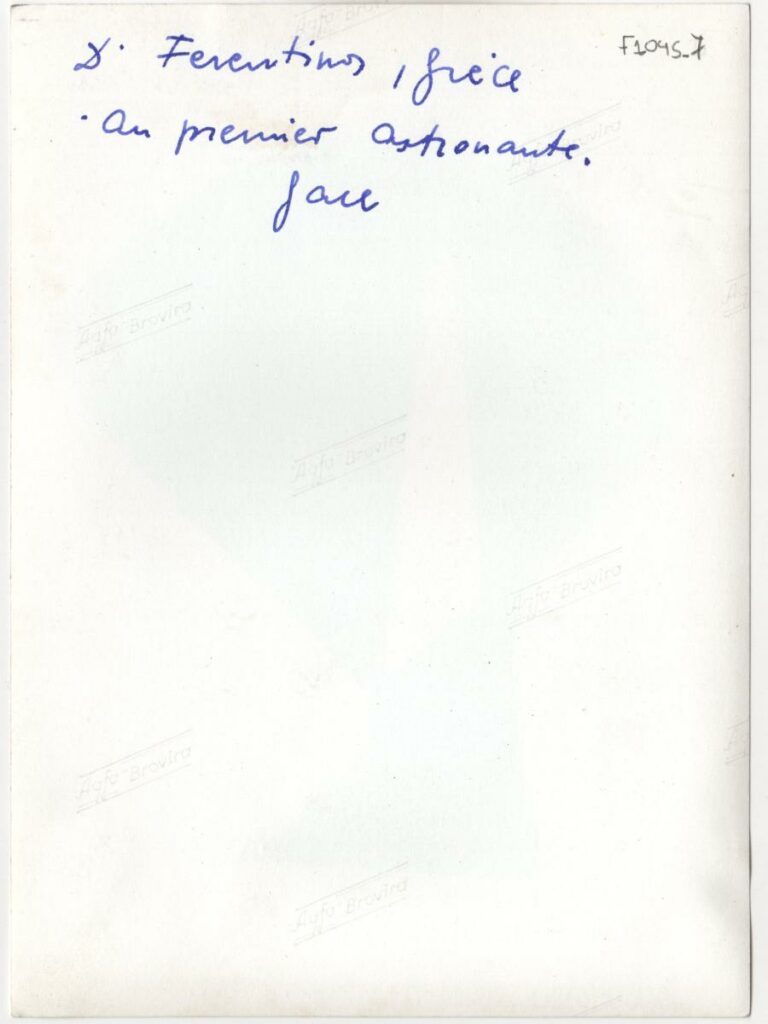 F1045-7
D. Ferentinos, Grèce
. Au premier astronaute.
Agfa Brovira
Agfa Brovira
Agfa Brovira
Agfa Brovira
Agfa Brovira
Agfa Brovira
Agfa Brovira